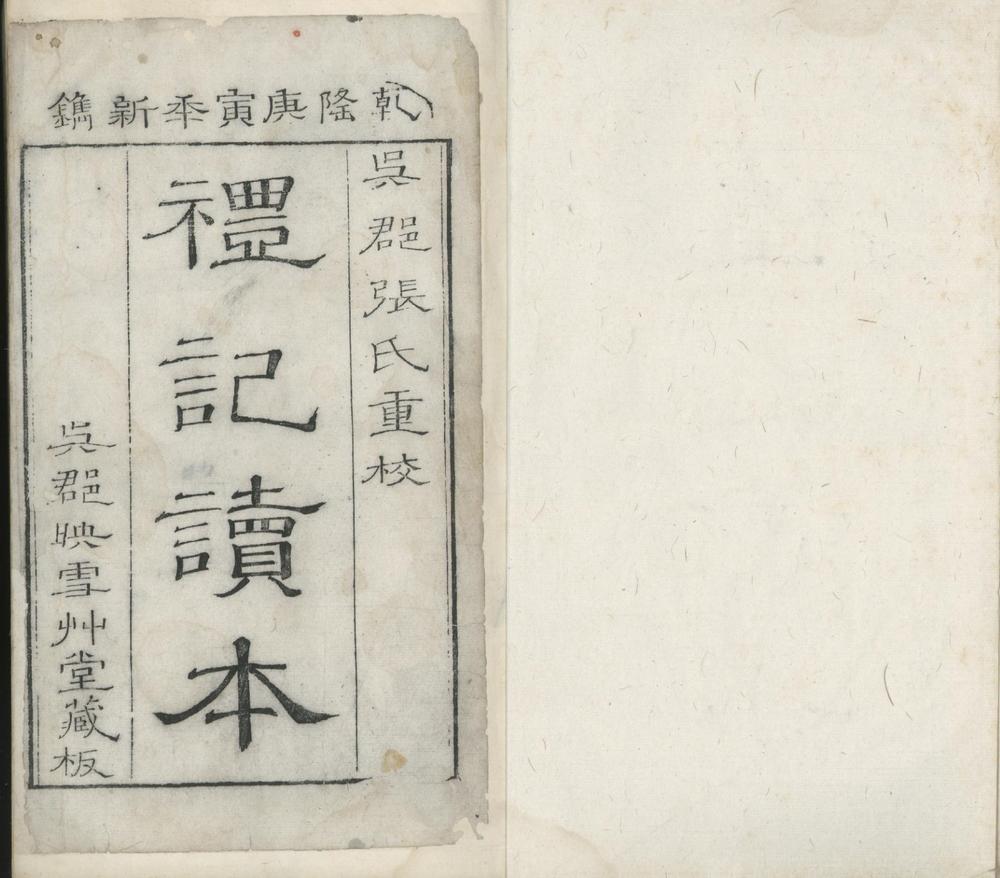 乾隆庚寅年新鐫
吳郡張氏重校
禮記讀本
吳郡映雪艸堂藏板